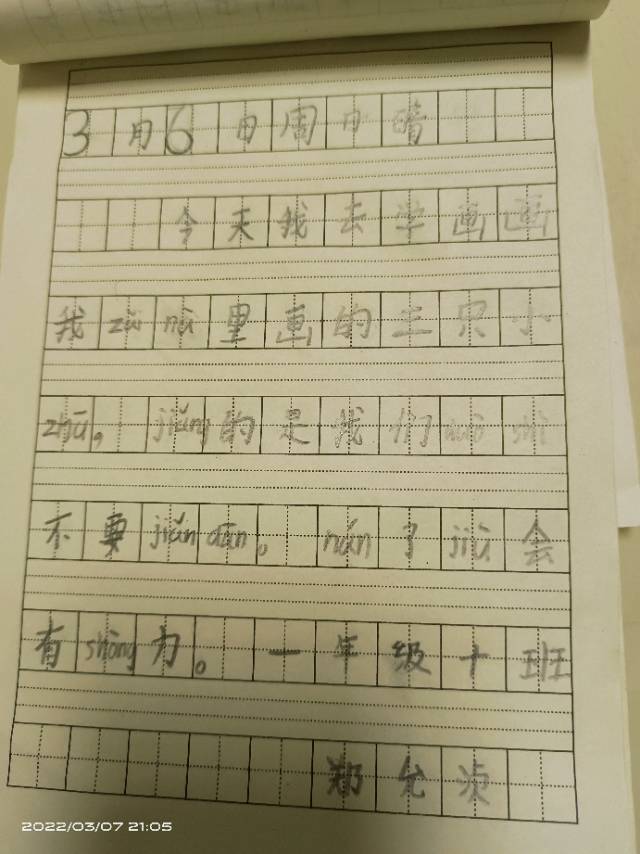 3月6日周日晴
今天我去学画画
我zài nà里画的三只小
zhū，jiǎng的是我们zuò shì
不要jiǎn dān。nán了jiù会
有shōng力。一年级十班
郑允浈
2022/03/07 21:05